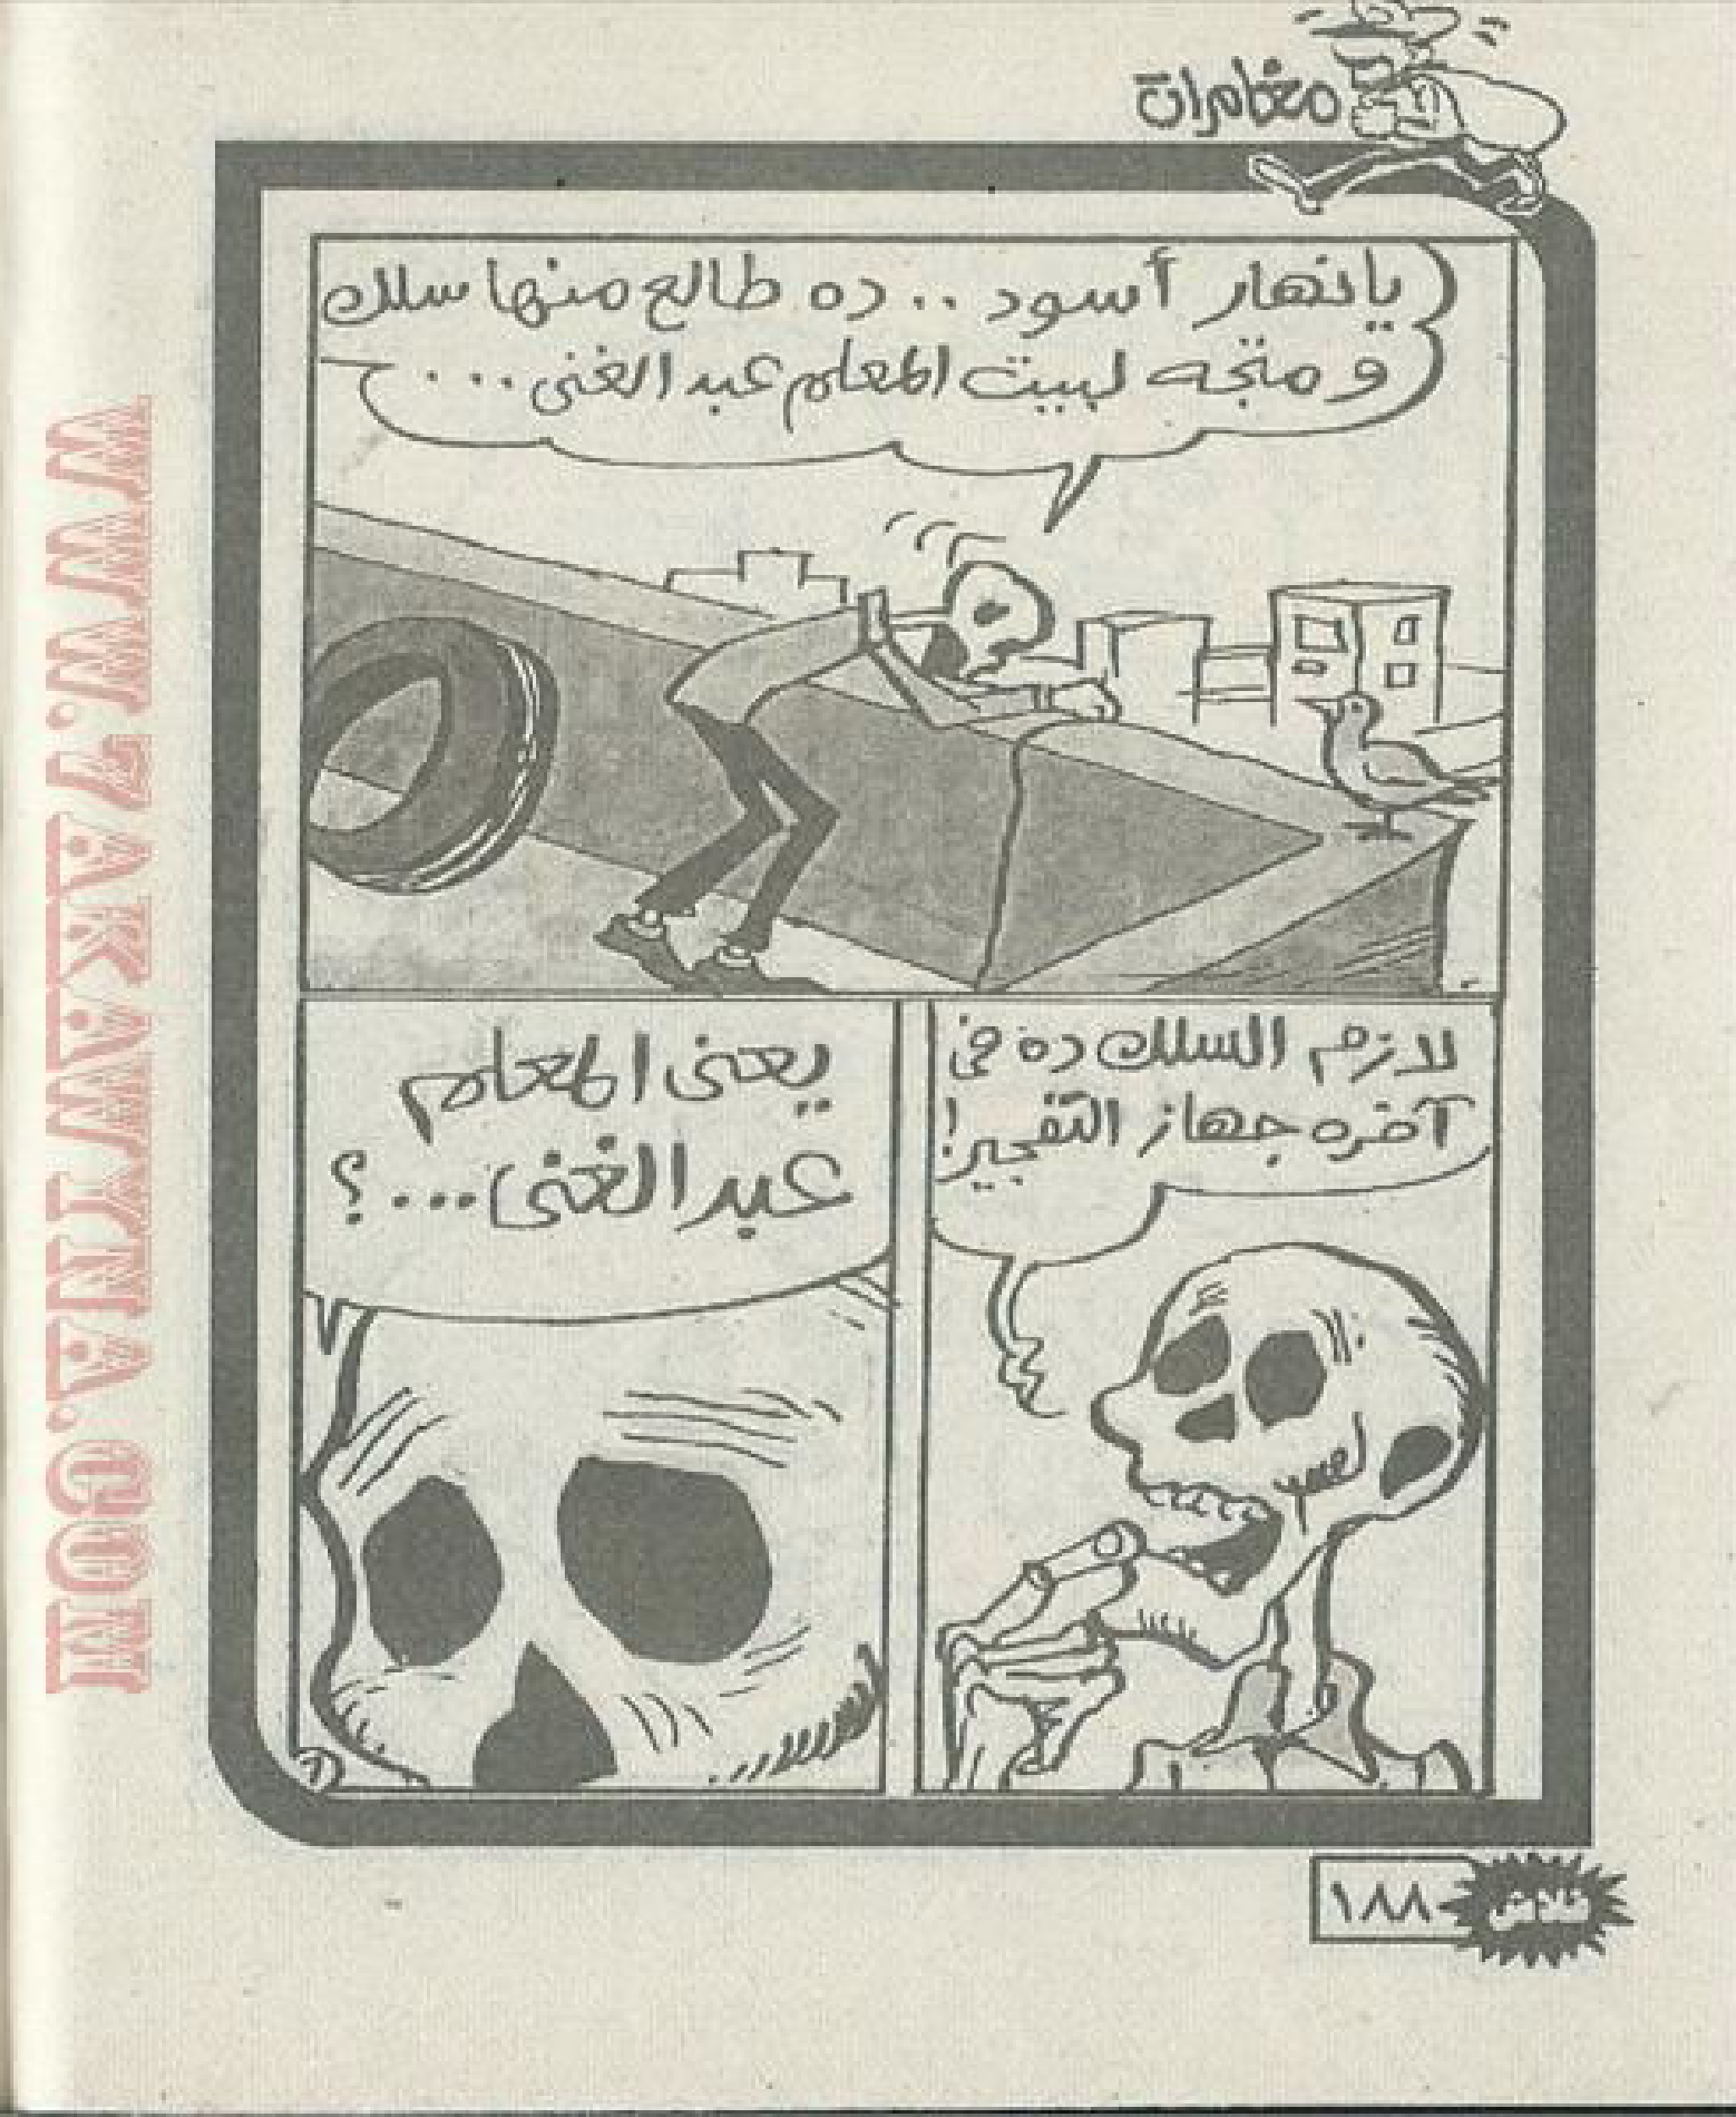 مغامرات
يانهار أسود .. ده طالع منها سلك
ومتجه لبيت المعلم عبد الغنى ...
لازم السلك ده فى
آخره جهاز التفجير!
يعنى المعلم
عبد الغنى ...؟
١٨٨
فلاش
WWW.7AKAWYTNA.COM